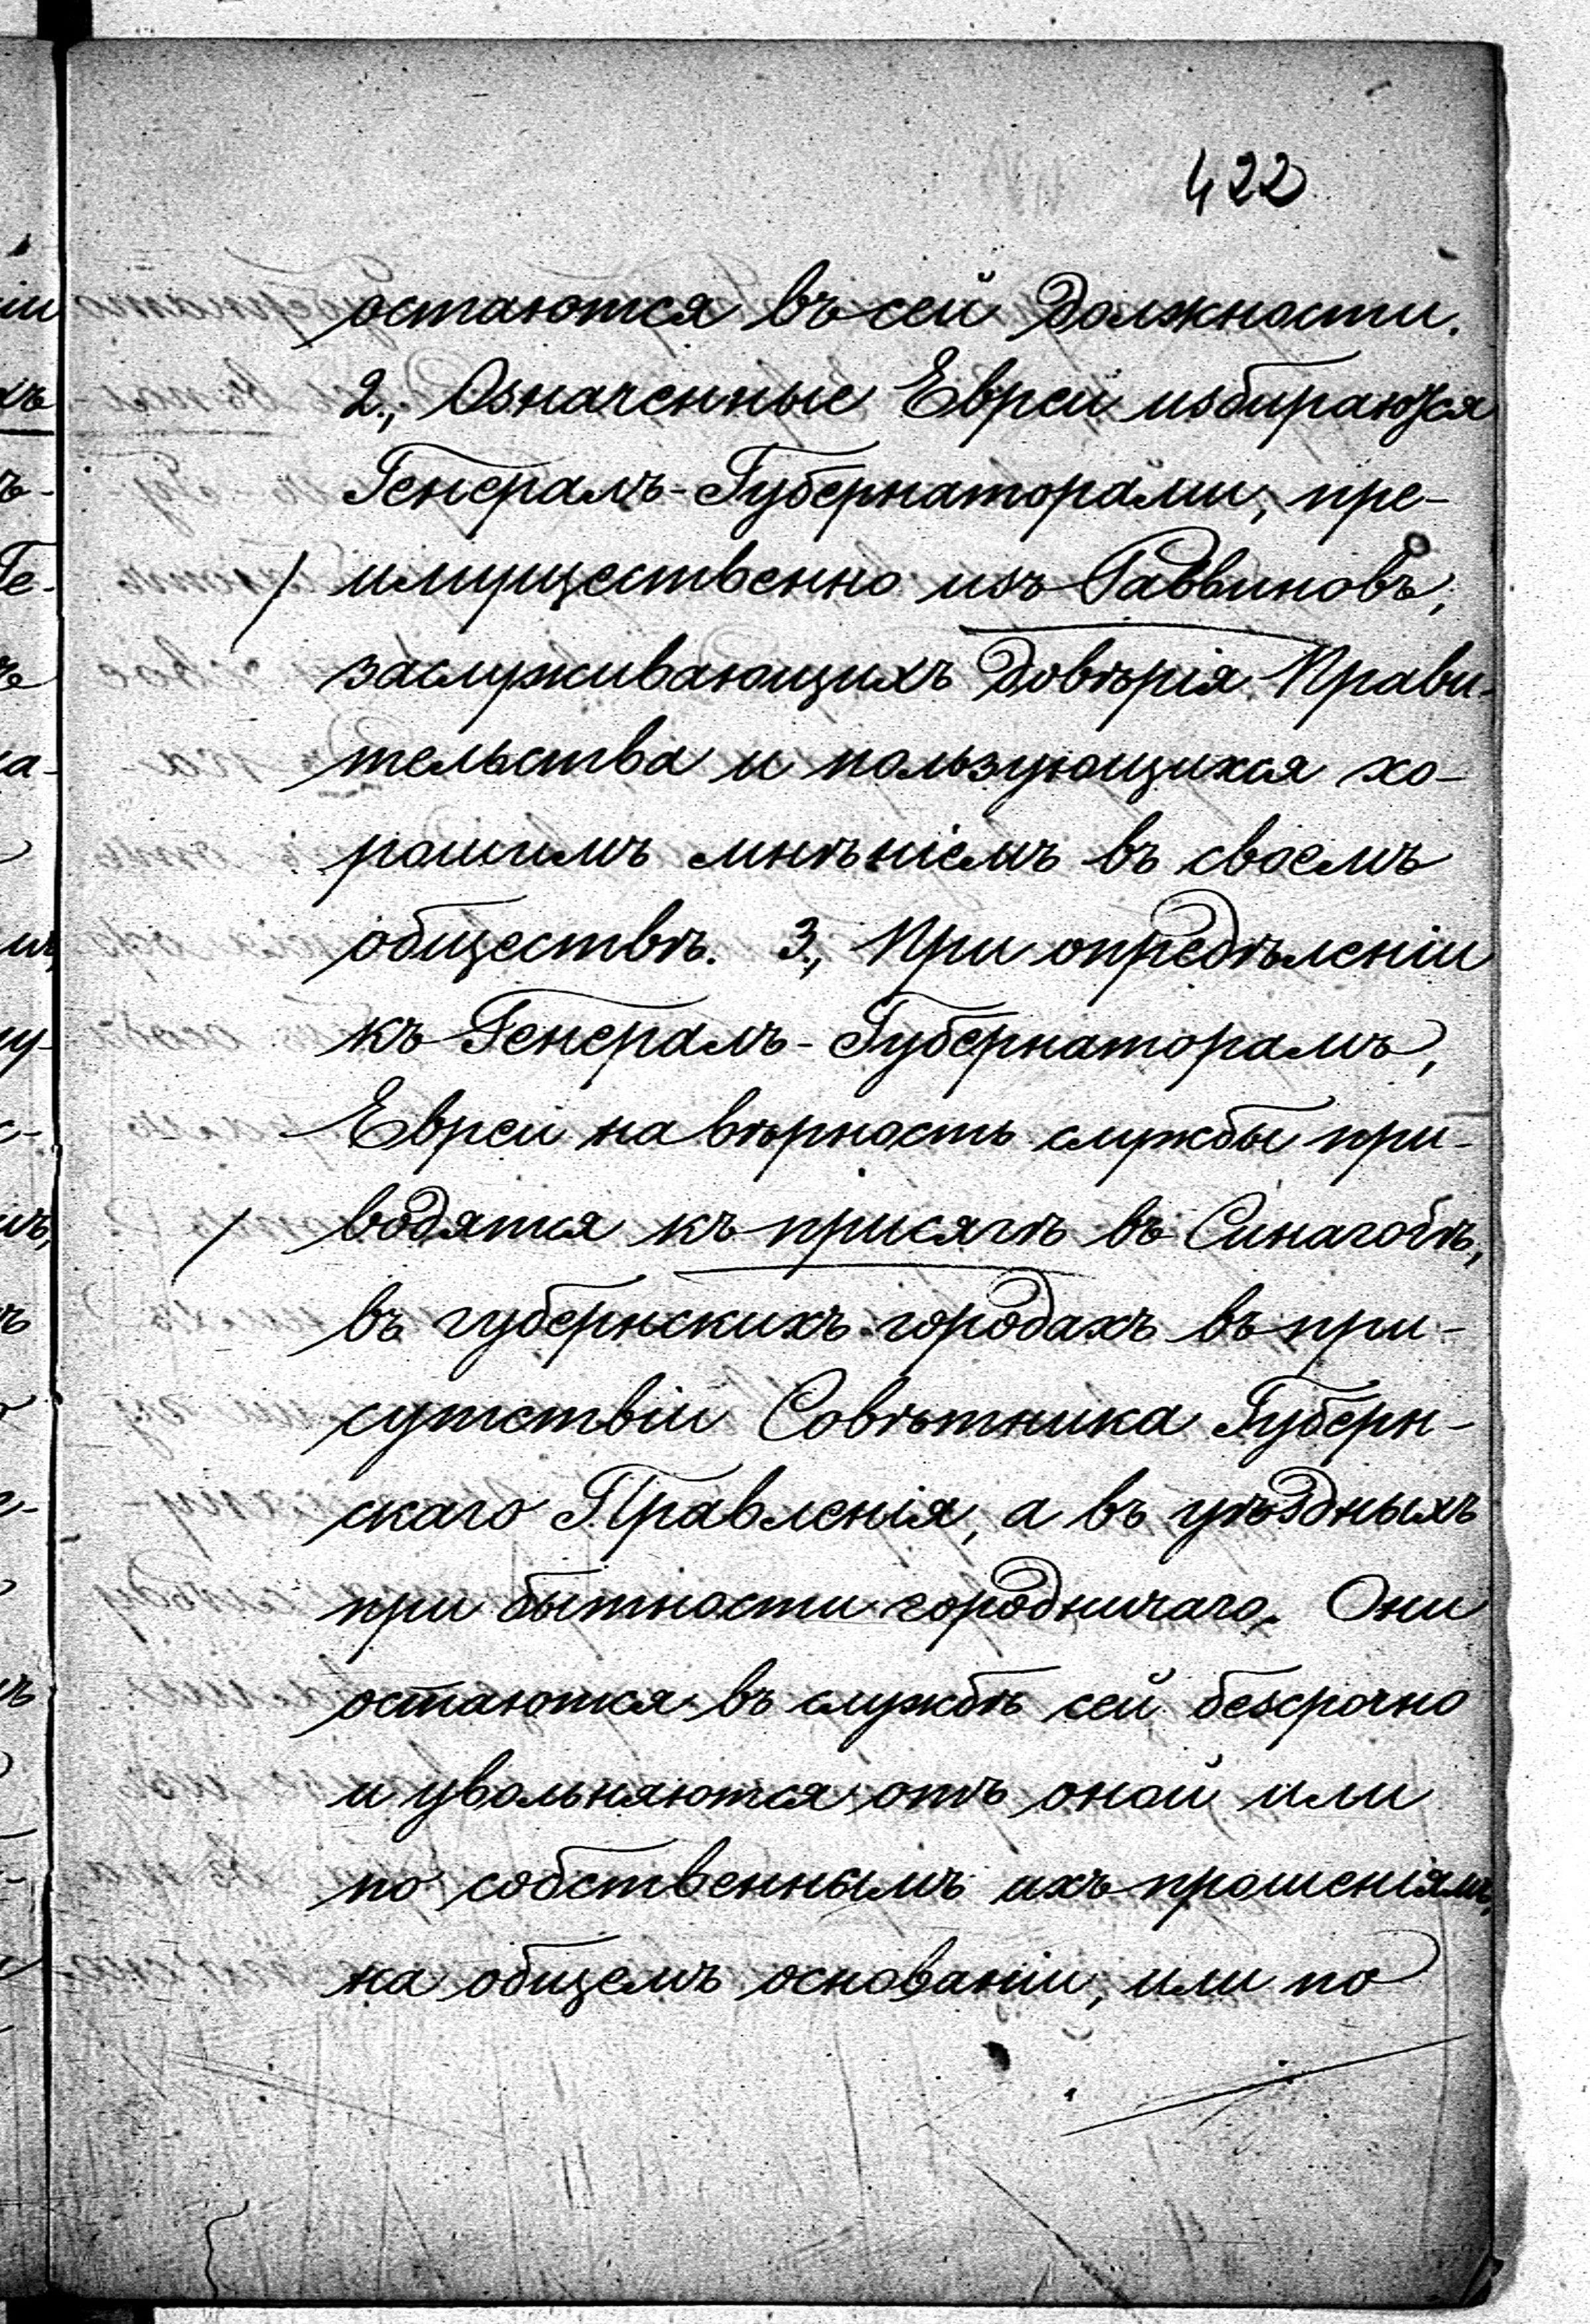 422
остаются въ сей должности.
2., Означенные Евреи избираются
Генералъ-Губернаторами, пре-
имущественно изъ Раввиновъ,
заслуживающихъ довѣрія Прави-
тельства и пользующихся хо-
рошимъ мнѣніемъ въ своемъ
обществѣ. 3., При опредѣленіи
къ Генералъ-Губернаторамъ,
Евреи на вѣрность службы при-
водятся къ присягѣ въ Синагогѣ,
въ губернскихъ городахъ въ при-
сутствіи Совѣтника Губерн-
скаго Правленія, а въ уѣздныхъ
при бытности городничаго. Они
остаются въ службѣ сей безсрочно
и увольняются отъ оной или
по собственнымъ ихъ прошеніямъ,
на общемъ основаніи, или по